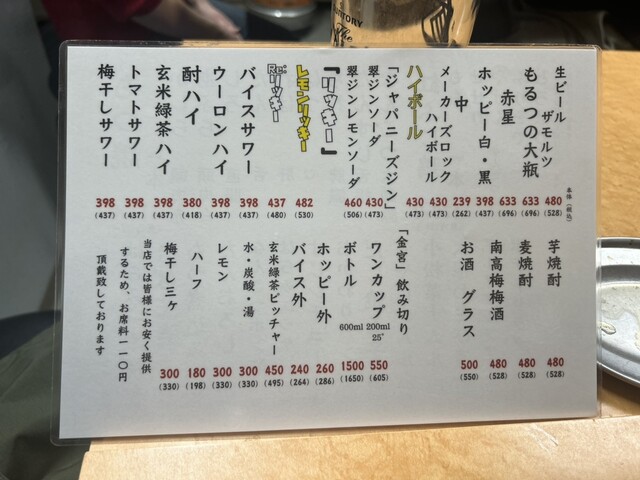 SUNTORY
The
本体(税込)
生ビール ザモルツ 480 (528)
もるつの大瓶 633 (696)
赤星 633 (696)
ホッピー白・黒 398 (437)
中 239 (262)
メーカーズロックハイボール 430 (473)
ハイボール 430 (473)
「ジャパニーズジン」
翠ジンソーダ 430 (473)
翠ジンレモンソーダ 460 (506)
『リッキー』
レモンリッキー 482 (530)
Re:リッキー 437 (480)
バイスサワー 398 (437)
ウーロンハイ 398 (437)
酎ハイ 380 (418)
玄米緑茶ハイ 398 (437)
トマトサワー 398 (437)
梅干しサワー 398 (437)
芋焼酎 480 (528)
麦焼酎 480 (528)
南高梅梅酒 480 (528)
お酒 グラス 500 (550)
「金宮」飲み切り
ワンカップ 200ml 25° 550 (605)
ボトル 600ml 1500 (1650)
ホッピー外 260 (286)
バイス外 240 (264)
玄米緑茶ピッチャー 450 (495)
水・炭酸・湯 300 (330)
レモン 300 (330)
ハーフ 180 (198)
梅干し三ケ 300 (330)
当店では皆様にお安く提供
するため、お席料一一〇円
頂戴致しております